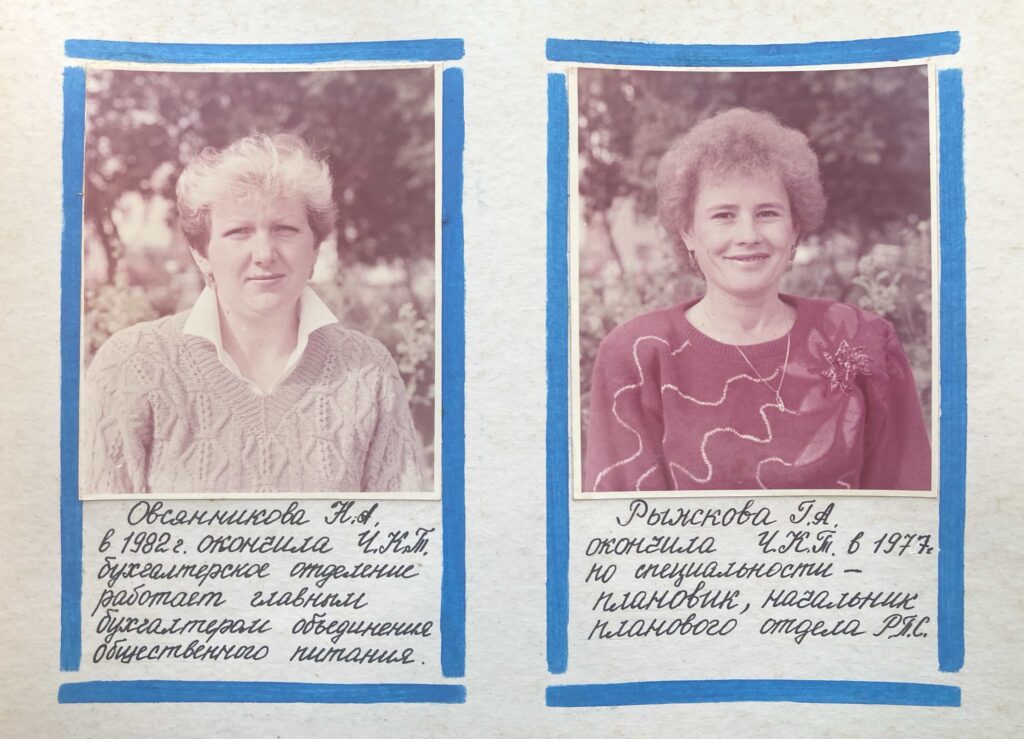 Овсянникова Н.А.
в 1982г. окончила Ч.К.Т.
бухгалтерское отделение
работает главным
бухгалтером объединения
общественного питания.
Рыжкова Г.А.
окончила Ч.К.Т. в 1977г
по специальности –
плановик, начальник
планового отдела Р.П.С.